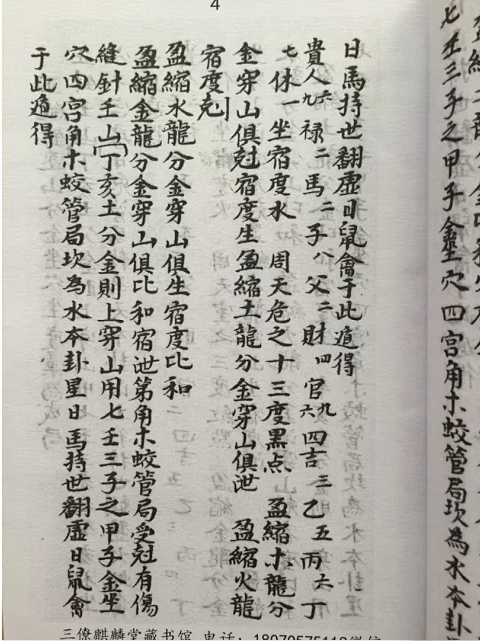 4
七壬三子之甲子金坐穴四宮角木蛟管局坎為水本卦
日馬持世翻虛日鼠禽于此遁得
貴人六九祿二馬二子八父二財四官六九四吉三乙五丙六丁
七休一坐宿度水 周天危之十三度黑点 盈縮木龍分
金穿山俱尅宿度生盈縮土龍分金穿山俱泄 盈縮火龍
宿度剋
盈縮水龍分金穿山俱生宿度比和
盈縮金龍分金穿山俱比和宿泄第角木蛟管局受尅有傷
縫針壬山丁亥土分金則上穿山用七壬三子之甲子金坐
穴四宮角木蛟管局坎為水本卦星日馬持世翻虛日鼠禽
于此遁得
三僚麒麟堂藏书馆 电话：